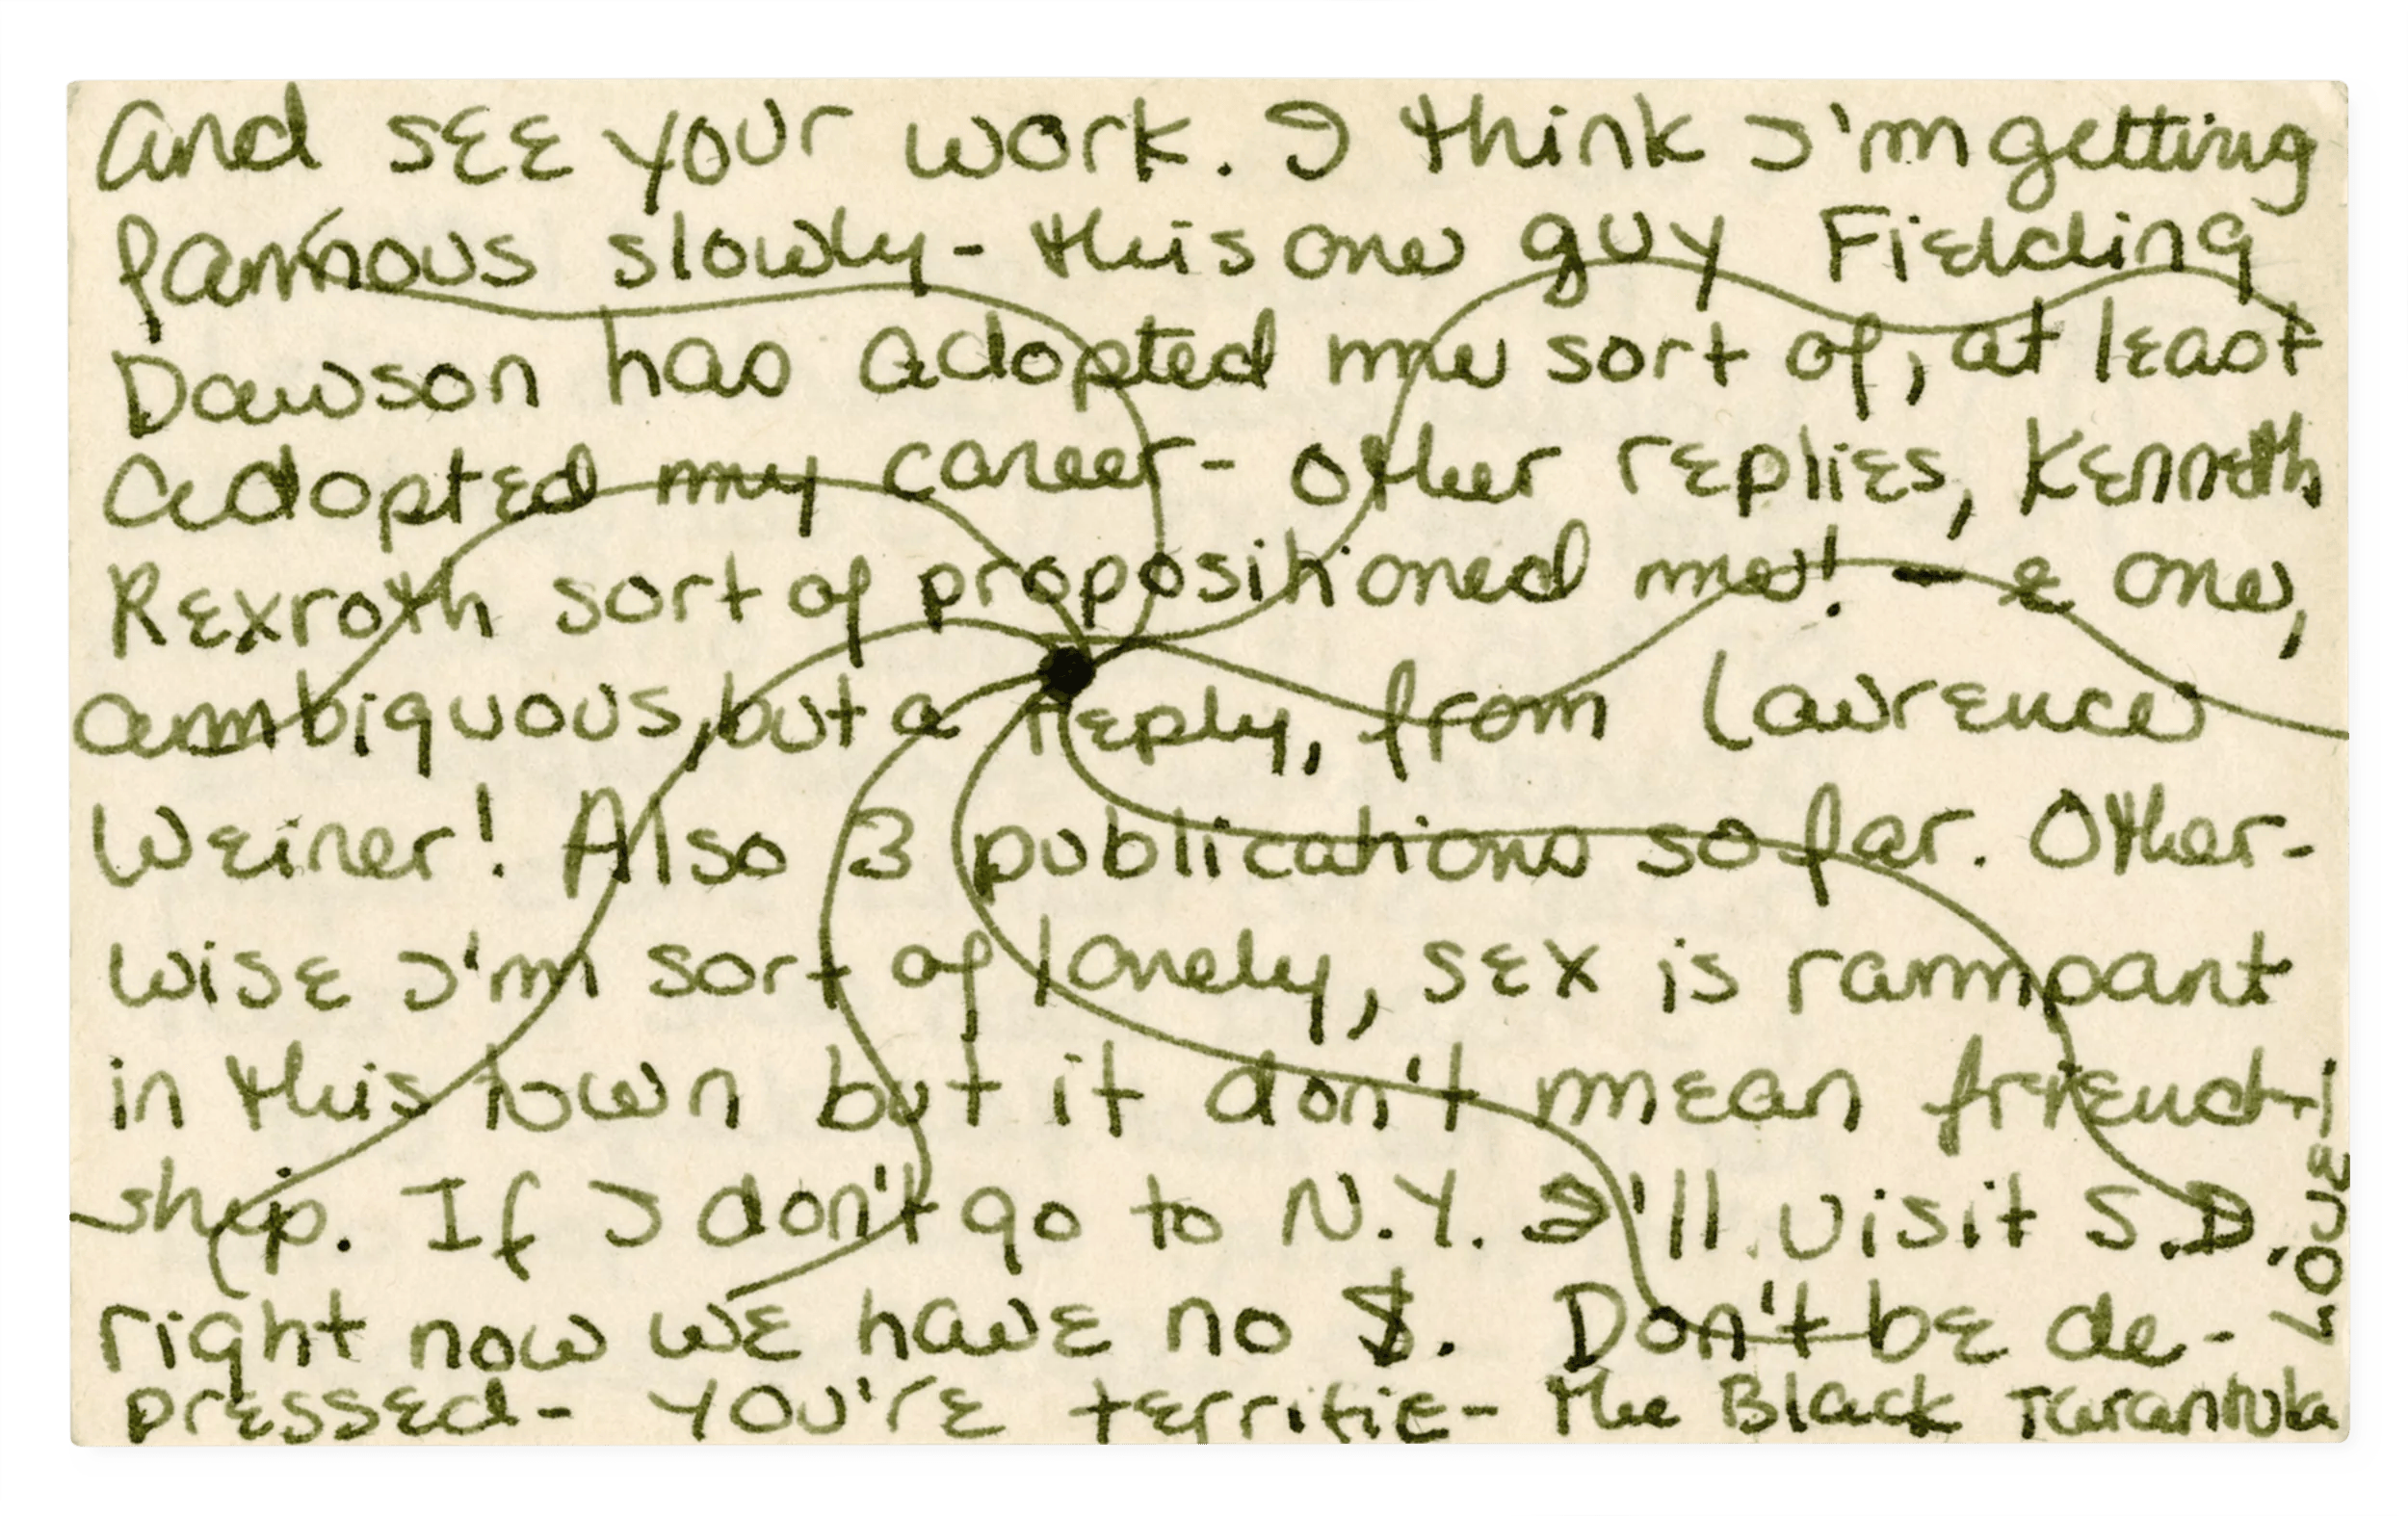 and see your work. I think I'm getting
famous slowly - this one guy Fielding
Dawson has adopted me sort of, at least
adopted my career - other replies, Kenneth
Rexroth sort of propositioned me! - & one,
ambiguous, but a reply, from Lawrence
Weiner! Also 3 publications so far. Other-
wise I'm sort of lonely, sex is rampant
in this town but it don't mean friend-
ship. If I don't go to N.Y. I'll visit S.D.
right now we have no $. Don't be de-
pressed - you're terrific - the Black Tarantula
Love!